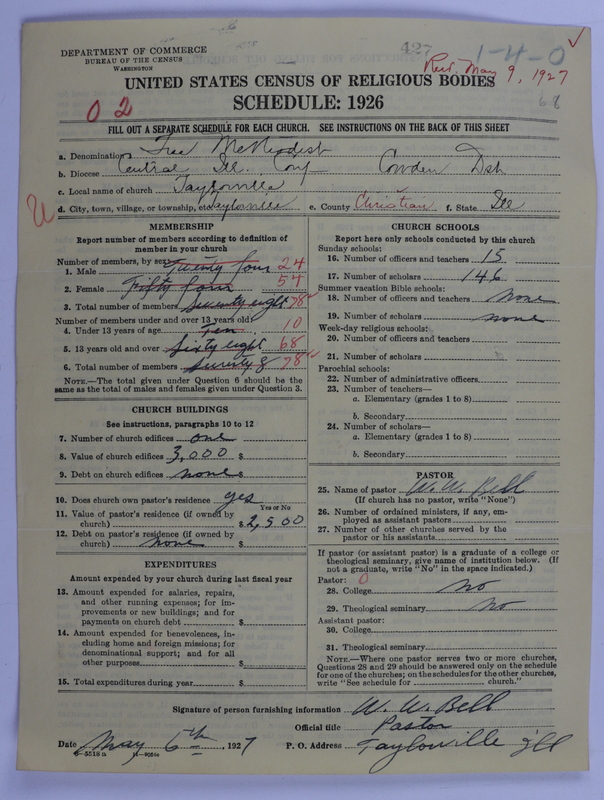 427
1-4-0
DEPARTMENT OF COMMERCE
BUREAU OF THE CENSUS
WASHINGTON
Rev. May 9, 1927
UNITED STATES CENSUS OF RELIGIOUS BODIES
68
02
SCHEDULE: 1926
FILL OUT A SEPARATE SCHEDULE FOR EACH CHURCH. SEE INSTRUCTIONS ON THE BACK OF THIS SHEET
a. Denomination Free Methodist
b. Diocese Central Ill. Conf Cowden Dst
c. Local name of church Taylorville
d. City, town, village, or township, etc. Taylorville e. County Christian f. State Ill
MEMBERSHIP
Report number of members according to definition of member in your church
Number of members, by sex:
1. Male Twenty four 24
2. Female Fifty four 54
3. Total number of members Seventy eight 78
Number of members under and over 13 years old:
4. Under 13 years of age Ten 10
5. 13 years old and over Sixty eight 68
6. Total number of members Seventy 8 78
NOTE.—The total given under Question 6 should be the same as the total of males and females given under Question 3.
CHURCH BUILDINGS
See instructions, paragraphs 10 to 12
7. Number of church edifices one
8. Value of church edifices 3,000 $
9. Debt on church edifices none $
10. Does church own pastor's residence yes
Yes or No
11. Value of pastor's residence (if owned by church) $ 2,500
12. Debt on pastor's residence (if owned by church) none $
EXPENDITURES
Amount expended by your church during last fiscal year
13. Amount expended for salaries, repairs, and other running expenses; for improvements or new buildings; and for payments on church debt $
14. Amount expended for benevolences, including home and foreign missions; for denominational support; and for all other purposes $
15. Total expenditures during year $
CHURCH SCHOOLS
Report here only schools conducted by this church
Sunday schools:
16. Number of officers and teachers 15
17. Number of scholars 146
Summer vacation Bible schools:
18. Number of officers and teachers none
19. Number of scholars none
Week-day religious schools:
20. Number of officers and teachers
21. Number of scholars
Parochial schools:
22. Number of administrative officers
23. Number of teachers—
a. Elementary (grades 1 to 8)
b. Secondary
24. Number of scholars—
a. Elementary (grades 1 to 8)
b. Secondary
PASTOR
25. Name of pastor W. W. Bell
(If church has no pastor, write "None")
26. Number of ordained ministers, if any, employed as assistant pastors
27. Number of other churches served by the pastor or his assistants
If pastor (or assistant pastor) is a graduate of a college or theological seminary, give name of institution below. (If not a graduate, write "No" in the space indicated.)
Pastor: 0
28. College no
29. Theological seminary no
Assistant pastor:
30. College
31. Theological seminary
NOTE.—Where one pastor serves two or more churches, Questions 28 and 29 should be answered only on the schedule for one of the churches; on the schedules for the other churches, write "See schedule for church."
Signature of person furnishing information W. W. Bell
Official title Pastor
Date May 6th, 1927 P. O. Address Taylorville Ill